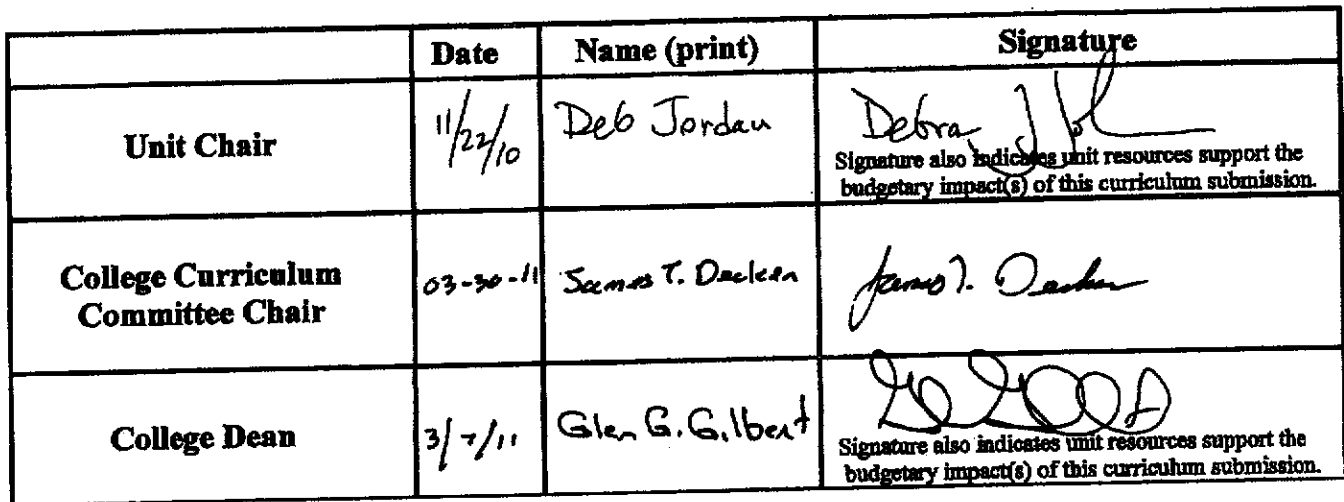 Date Name (print) Signature
Unit Chair 11/22/10 Deb Jordan Debra J
Signature also indicates unit resources support the
budgetary impact(s) of this curriculum submission.
College Curriculum
Committee Chair 03-30-11 James T. Decker James T. Decker
College Dean 3/7/11 Glen G. Gilbert
Signature also indicates unit resources support the
budgetary impact(s) of this curriculum submission.